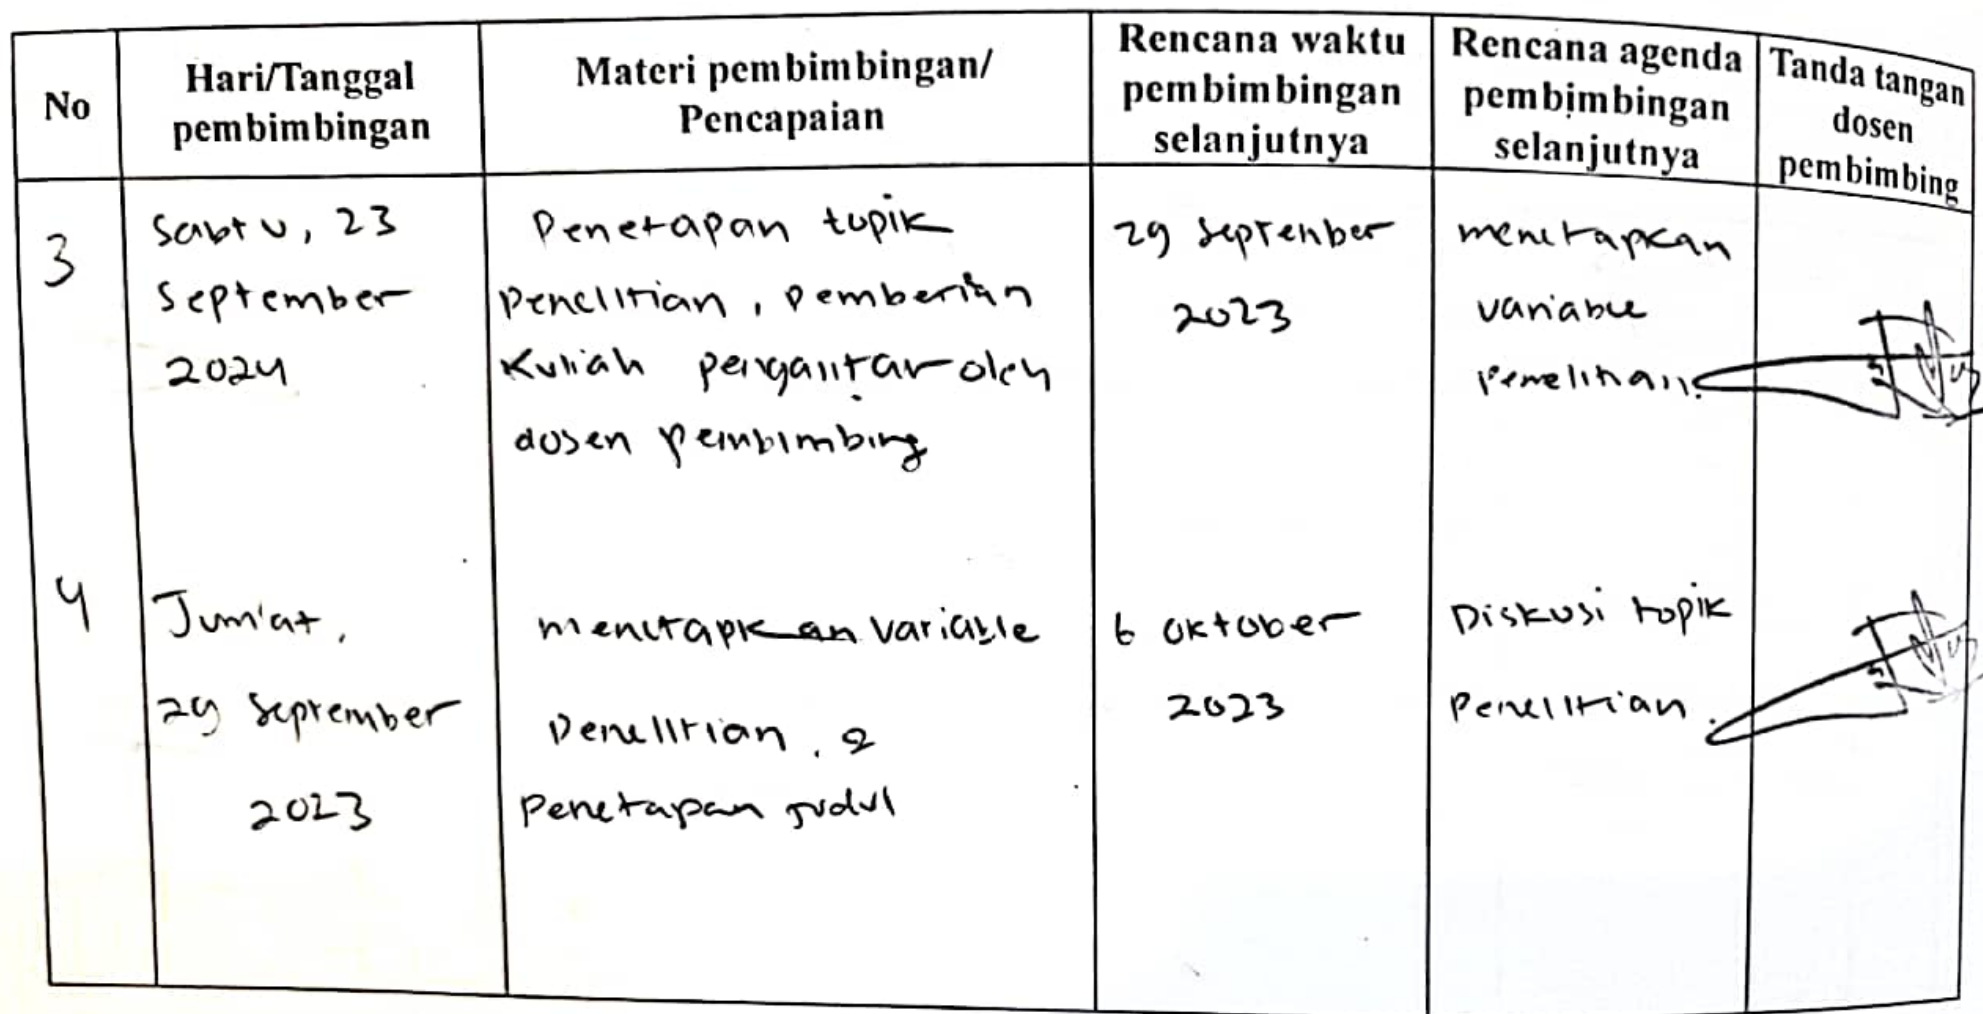 No
Hari/Tanggal
pembimbingan
Materi pembimbingan/
Pencapaian
Rencana waktu
pembimbingan
selanjutnya
Rencana agenda
pembimbingan
selanjutnya
Tanda tangan
dosen
pembimbing
3
Sabtu, 23
September
2024
Penetapan topik
Penelitian, pemberian
Kuliah pengantar oleh
dosen pembimbing
29 September
2023
menetapkan
variable
Penelitian.
4
Jum'at,
29 September
2023
menetapkan variable
Penelitian, &
Penetapan judul
6 Oktober
2023
Diskusi topik
Penelitian.